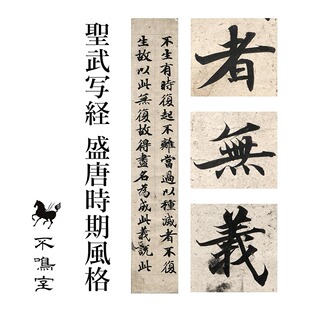 聖武写経 盛唐時期風格
不鳴室
不生有時復起不離當過以種滅者不復
生故以此無復故得盡名為成此義説此
者
無
義